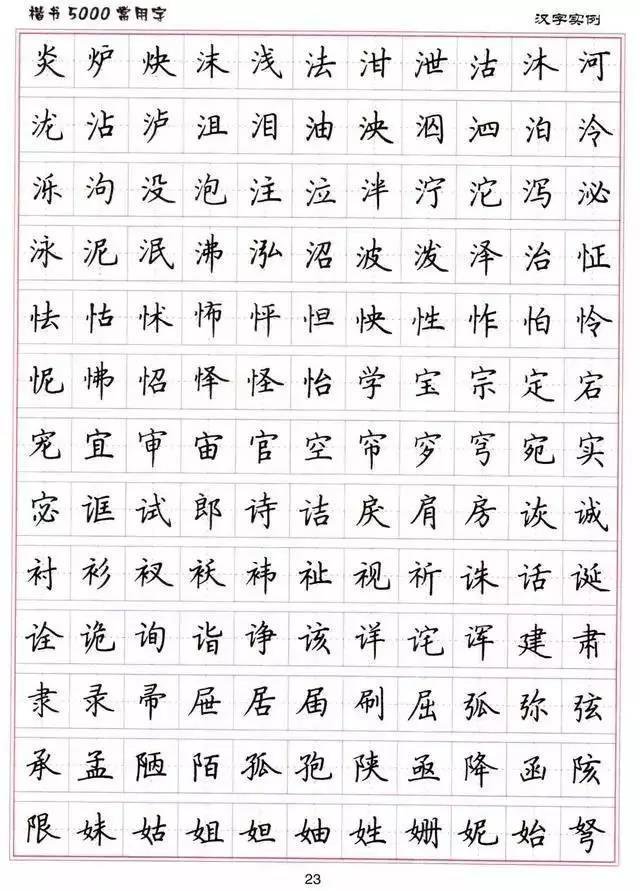 楷书5000常用字 汉字实例
炎炉炔沫浅法泔泄沽沐河
泷沾泸沮泪油泱泅泗泊泠
泺沟没泡注泣泮泞沱泻泌
泳泥泯沸泓沼波泼泽治怔
怯怙怵怖怦怛怏性怍怕怜
怩怫怊怿怪怡学宝宗定宕
宠宜审宙官空帘穸穹宛实
宓诓试郎诗诘戾肩房诙诚
衬衫衩袄祎祉视祈诛话诞
诠诡询诣诤该详诧诨建肃
隶录帚屉居届刷屈弧弥弦
承孟陋陌孤孢陕亟降函陔
限妹姑姐妲妯姓姗妮始弩
23